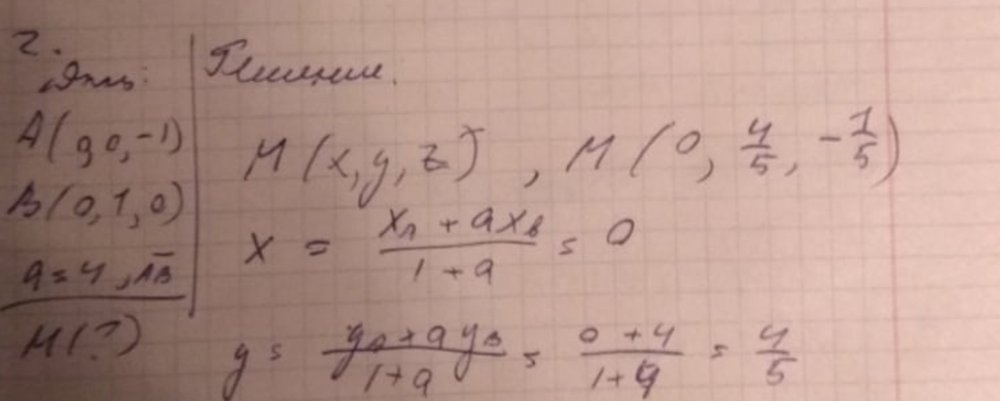 2.
Решение.
A(0,0,-1)
M(x,y,z), M(0, 4/5, -1/5)
B(0,1,0)
x = (x_A + a x_B)/(1 + a) = 0
a=4, AB
M(?)
y = (y_A + a y_B)/(1+a) = (0+4)/(1+4) = 4/5